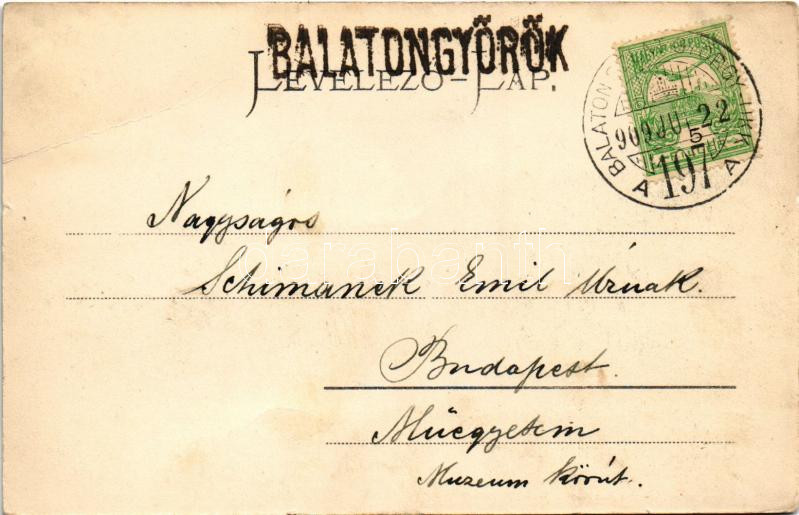 BALATONGYÖRÖK
LEVELEZŐ-LAP.
MAGYAR KIR. POSTA
BALATON
909 JUL 22
5
A 197 A
Nagyságos
Schimanek Emil Úrnak.
Budapest.
Műegyetem
Muzeum körút.
darabanth